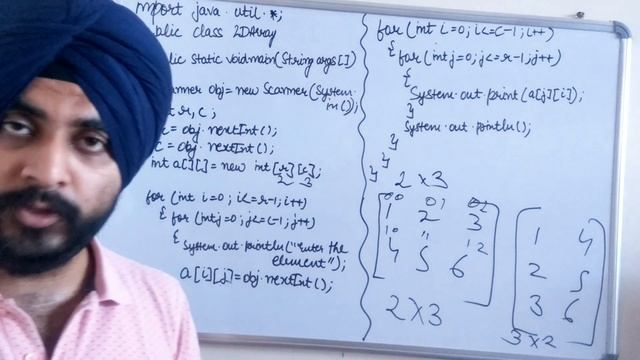 import java.util.*;
public class 2DArray
public static void main(String args[])
Scanner obj=new Scanner(System.
in());
int r, c;
r= obj.nextInt();
c= obj.nextInt();
int a[][]=new int[r][c];
2 3
for (int i=0; i<=r-1; i++)
{ for (int j=0; j<=c-1; j++)
{ System.out.println("Enter the
element");
a[i][j]=obj.nextInt();
for (int i=0; i<=c-1; i++)
{ for (int j=0; j<=r-1; j++)
{
System.out.print(a[j][i]);
}
System.out.println();
}
}
}
2x3
00 01 02
1 2 3
10 11 12
4 5 6
2x3
1 4
2 5
3 6
3x2